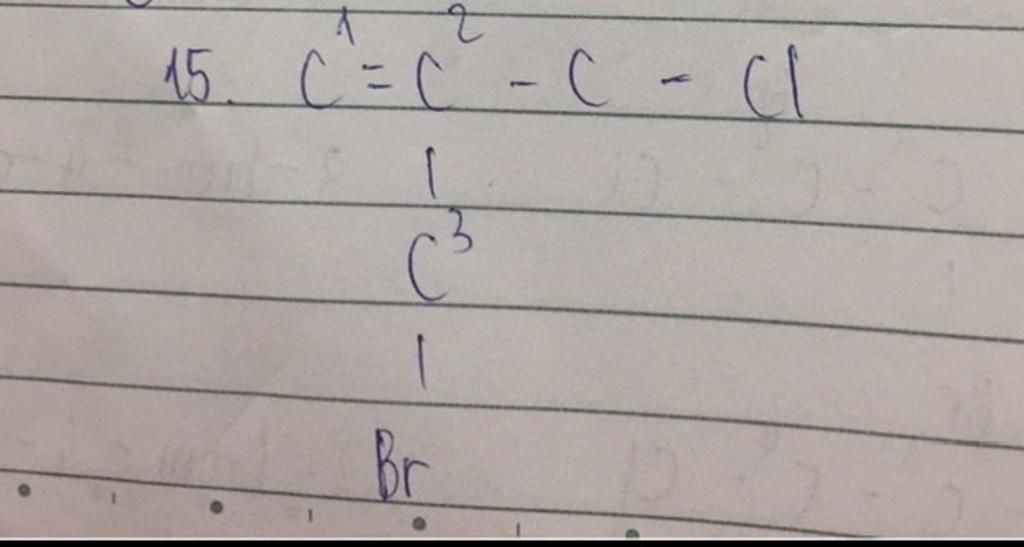 1 2
15. C = C - C - Cl
|
C 3
|
Br